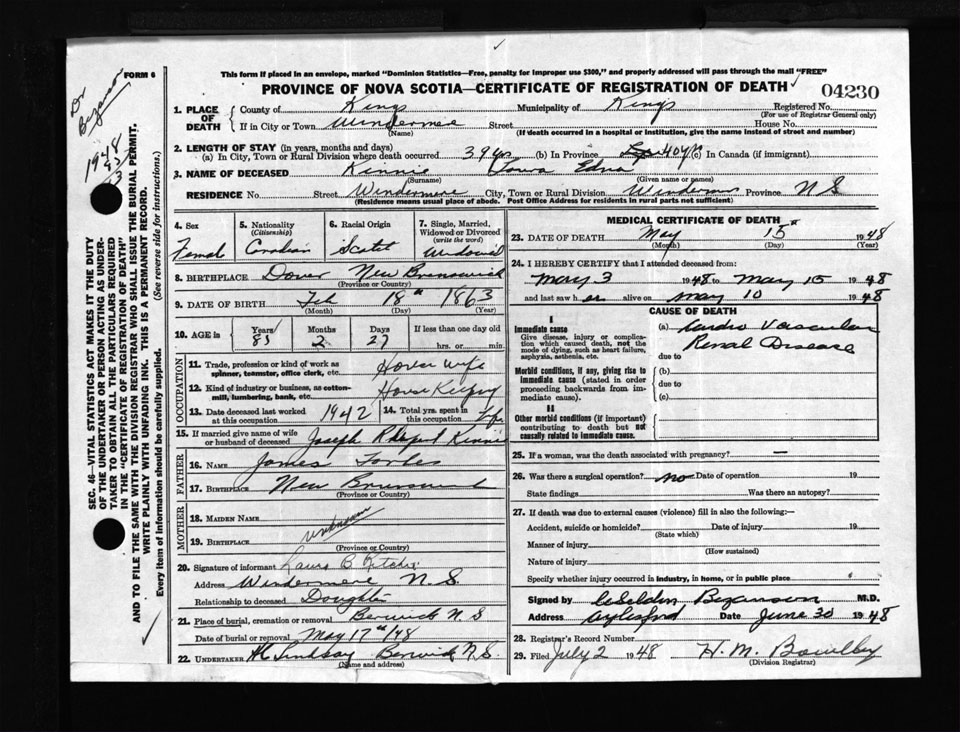 This form if placed in an envelope, marked "Dominion Statistics—Free, penalty for improper use $300," and properly addressed will pass through the mail "FREE"
FORM 6
PROVINCE OF NOVA SCOTIA—CERTIFICATE OF REGISTRATION OF DEATH
04230
Dr Bezanson
1948
1. PLACE OF DEATH County of Kings Municipality of Kings Registered No.
(For use of Registrar General only)
If in City or Town Windermere Street House No.
(Name) (If death occurred in a hospital or institution, give the name instead of street and number)
2. LENGTH OF STAY (in years, months and days)
(a) In City, Town or Rural Division where death occurred 39 yrs (b) In Province 40 yrs (c) In Canada (if immigrant)
3. NAME OF DECEASED Kinnie Edna
(Surname) (Given name or names)
RESIDENCE No. Street Windermere City, Town or Rural Division Province N S
(Residence means usual place of abode. Post Office Address for residents in rural parts not sufficient)
4. Sex
Femal
5. Nationality
(Citizenship)
6. Racial Origin
7. Single, Married, Widowed or Divorced
(write the word)
8. BIRTHPLACE Dover New Brunswick
(Province or Country)
9. DATE OF BIRTH Feb 18th 1863
(Month) (Day) (Year)
10. AGE in Years 85 Months 2 Days 27 If less than one day old
hrs. or min.
OCCUPATION
11. Trade, profession or kind of work as spinner, teamster, office clerk, etc. House wife
12. Kind of industry or business, as cotton-mill, lumbering, bank, etc. House Keeping
13. Date deceased last worked at this occupation 1942 14. Total yrs. spent in this occupation Life
15. If married give name of wife or husband of deceased Joseph Kinnie
FATHER
16. NAME James Forbes
17. BIRTHPLACE New Brunswick
(Province or Country)
MOTHER
18. MAIDEN NAME
19. BIRTHPLACE unknown
(Province or Country)
20. Signature of informant Laura B. Ritchie
Address Windermere N. S.
Relationship to deceased Daughter
21. Place of burial, cremation or removal Berwick N. S
Date of burial or removal May 17th/48
22. UNDERTAKER Lindsay Berwick N.S.
(Name and address)
MEDICAL CERTIFICATE OF DEATH
23. DATE OF DEATH May 15th 1948
(Month) (Day) (Year)
24. I HEREBY CERTIFY that I attended deceased from:
May 3 1948 to May 15 1948
and last saw her alive on May 10 1948
CAUSE OF DEATH
I
Immediate cause
Give disease, injury or complication which caused death, not the mode of dying, such as heart failure, asphyxia, asthenia, etc.
(a) Cardio Vascular
Renal Disease
due to
Morbid conditions, if any, giving rise to immediate cause (stated in order proceeding backwards from immediate cause).
(b)
due to
(c)
II
Other morbid conditions (if important) contributing to death but not causally related to immediate cause.
25. If a woman, was the death associated with pregnancy? —
26. Was there a surgical operation? no Date of operation 19
State findings Was there an autopsy?
27. If death was due to external causes (violence) fill in also the following:—
Accident, suicide or homicide? Date of injury 19
(State which)
Manner of injury
(How sustained)
Nature of injury
Specify whether injury occurred in industry, in home, or in public place
Signed by Bezanson M.D.
Address Aylesford Date June 30 1948
28. Registrar's Record Number
29. Filed July 2 1948 H. M. Bowlby
(Division Registrar)
SEC. 46—VITAL STATISTICS ACT MAKES IT THE DUTY
OF THE UNDERTAKER OR PERSON ACTING AS UNDER-
TAKER TO OBTAIN ALL THE PARTICULARS REQUIRED
IN THE "CERTIFICATE OF REGISTRATION OF DEATH"
AND TO FILE THE SAME WITH THE DIVISION REGISTRAR WHO SHALL ISSUE THE BURIAL PERMIT.
WRITE PLAINLY WITH UNFADING INK. THIS IS A PERMANENT RECORD.
Every item of information should be carefully supplied. (See reverse side for instructions.)